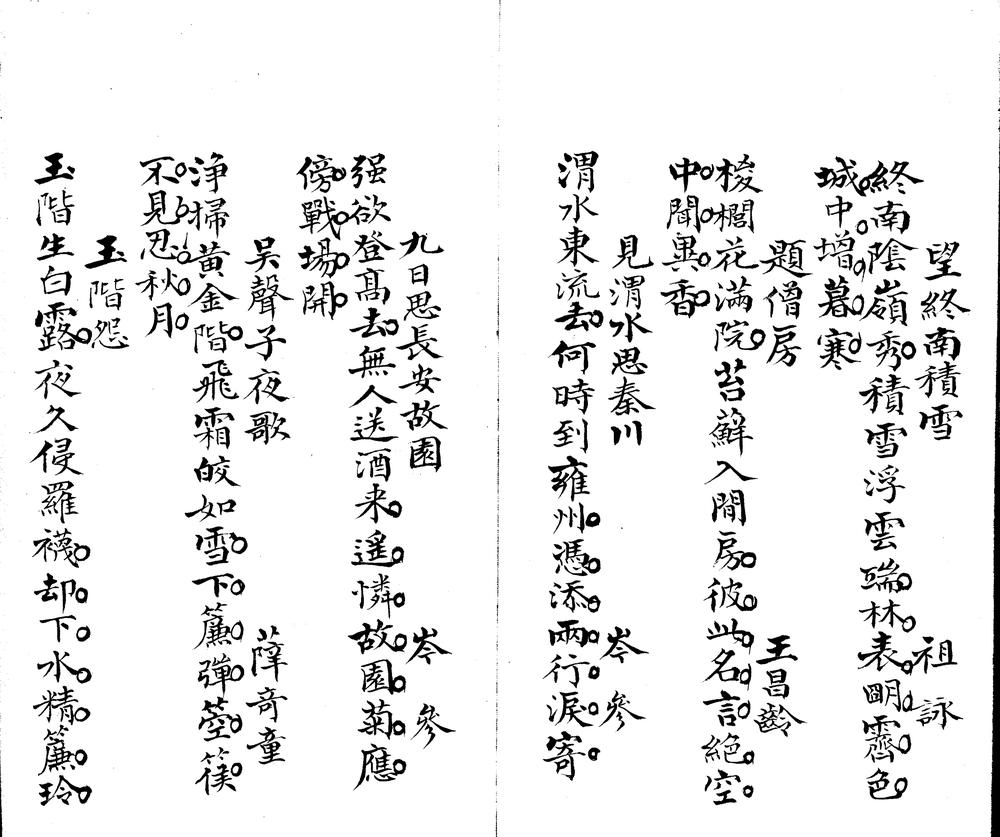 望終南積雪 祖詠
終南陰嶺秀積雪浮雲端林表明霽色
城中增暮寒
題僧房 王昌齡
椶櫚花滿院苔蘚入閒房彼此名言絕空
中聞異香
見渭水思秦川 岑參
渭水東流去何時到雍州憑添兩行淚寄
九日思長安故園 岑參
强欲登高去無人送酒来遥憐故園菊應
傍戰場開
吴聲子夜歌 薛奇童
浄掃黃金階飛霜皎如雪下簾彈箜篌
不見忍秋月
玉階怨
玉階生白露夜久侵羅襪却下水精簾玲